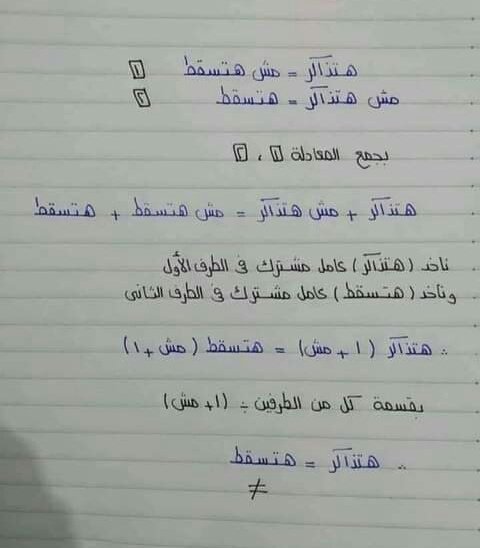 هتذاكر = مش هتسقط ١
مش هتذاكر = هتسقط ٢
بجمع المعادلة ١ ، ٢
هتذاكر + مش هتذاكر = مش هتسقط + هتسقط
ناخد (هتذاكر) كامل مشترك فى الطرف الأول
ونأخد (هتسقط) كامل مشترك فى الطرف الثانى
∴ هتذاكر (١ + مش) = هتسقط (مش + ١)
بقسمة كل من الطرفين ÷ (١ + مش)
∴ هتذاكر = هتسقط
≠